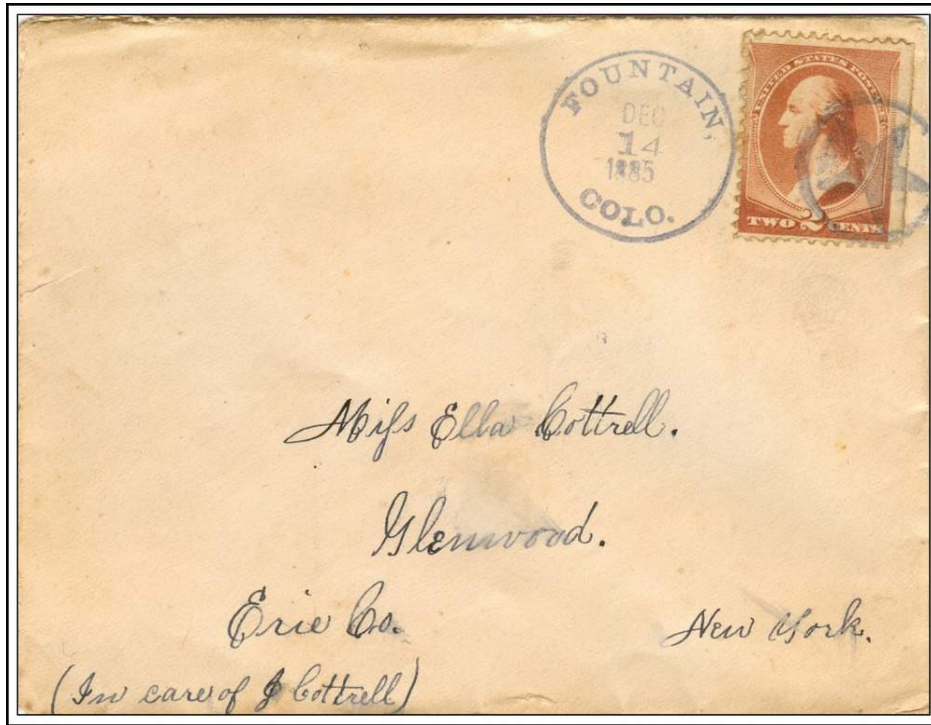 FOUNTAIN,
DEC
14
1885
COLO.
UNITED STATES POSTAGE
TWO 2 CENTS
Miss Ella Cottrell.
Glenwood.
Erie Co. New York.
(In care of J Cottrell)